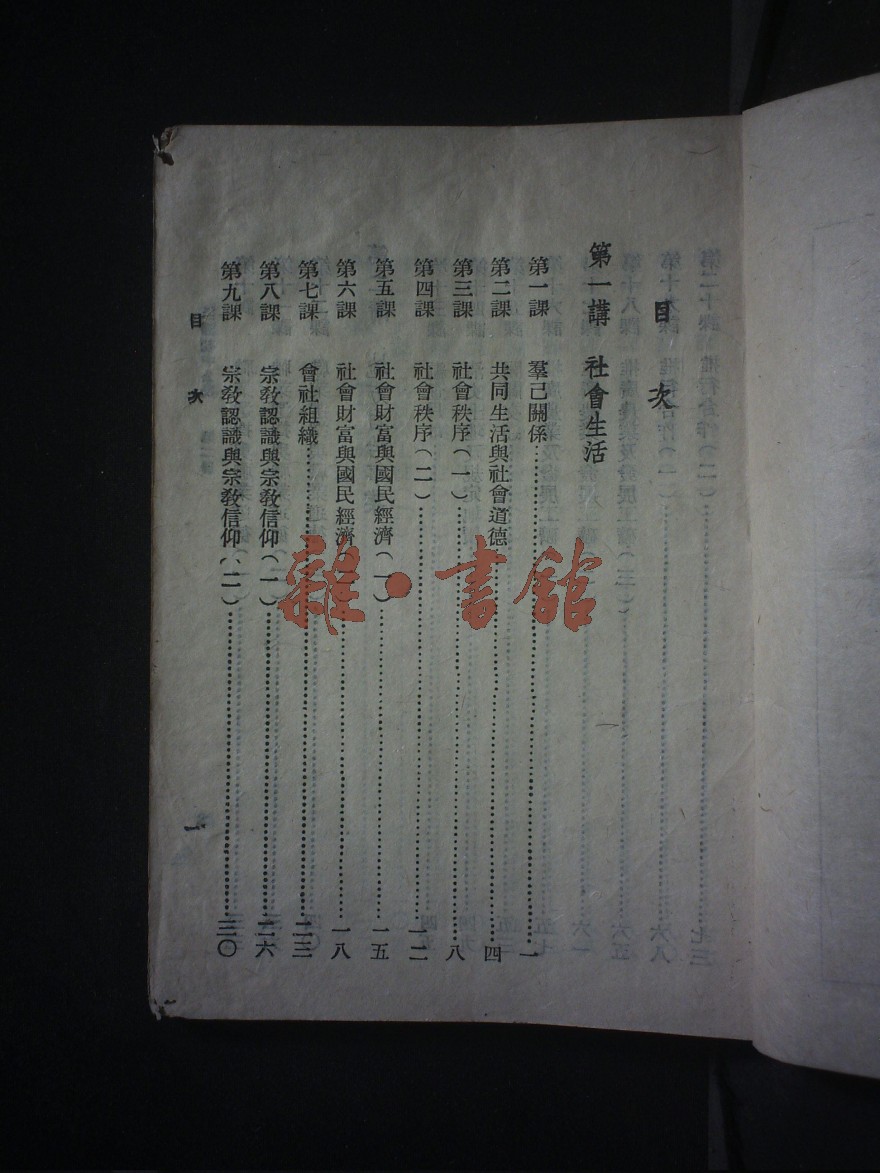 目次
第一講 社會生活
第一課 羣己關係⋯⋯⋯⋯一
第二課 共同生活與社會道德⋯⋯⋯⋯四
第三課 社會秩序(一)⋯⋯⋯⋯八
第四課 社會秩序(二)⋯⋯⋯⋯一二
第五課 社會財富與國民經濟(一)⋯⋯⋯⋯一五
第六課 社會財富與國民經濟(二)⋯⋯⋯⋯一八
第七課 會社組織⋯⋯⋯⋯二三
第八課 宗教認識與宗教信仰(一)⋯⋯⋯⋯二六
第九課 宗教認識與宗教信仰(二)⋯⋯⋯⋯三〇
目次
一
雜·書館